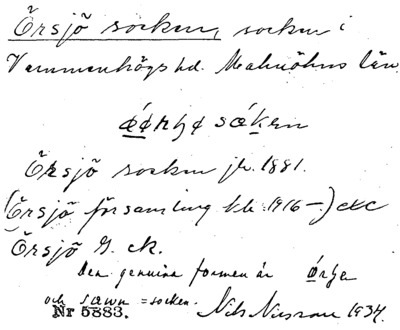 Örsjö socken, socken i
Vemmenhögs hd. Malmöhus län.
Örsjö socken jb. 1881.
(Örsjö församling kb. 1916–) etc
Örsjö G. ck.
Den genuina formen är
och = socken.
Nr 5883. Nils 1934.